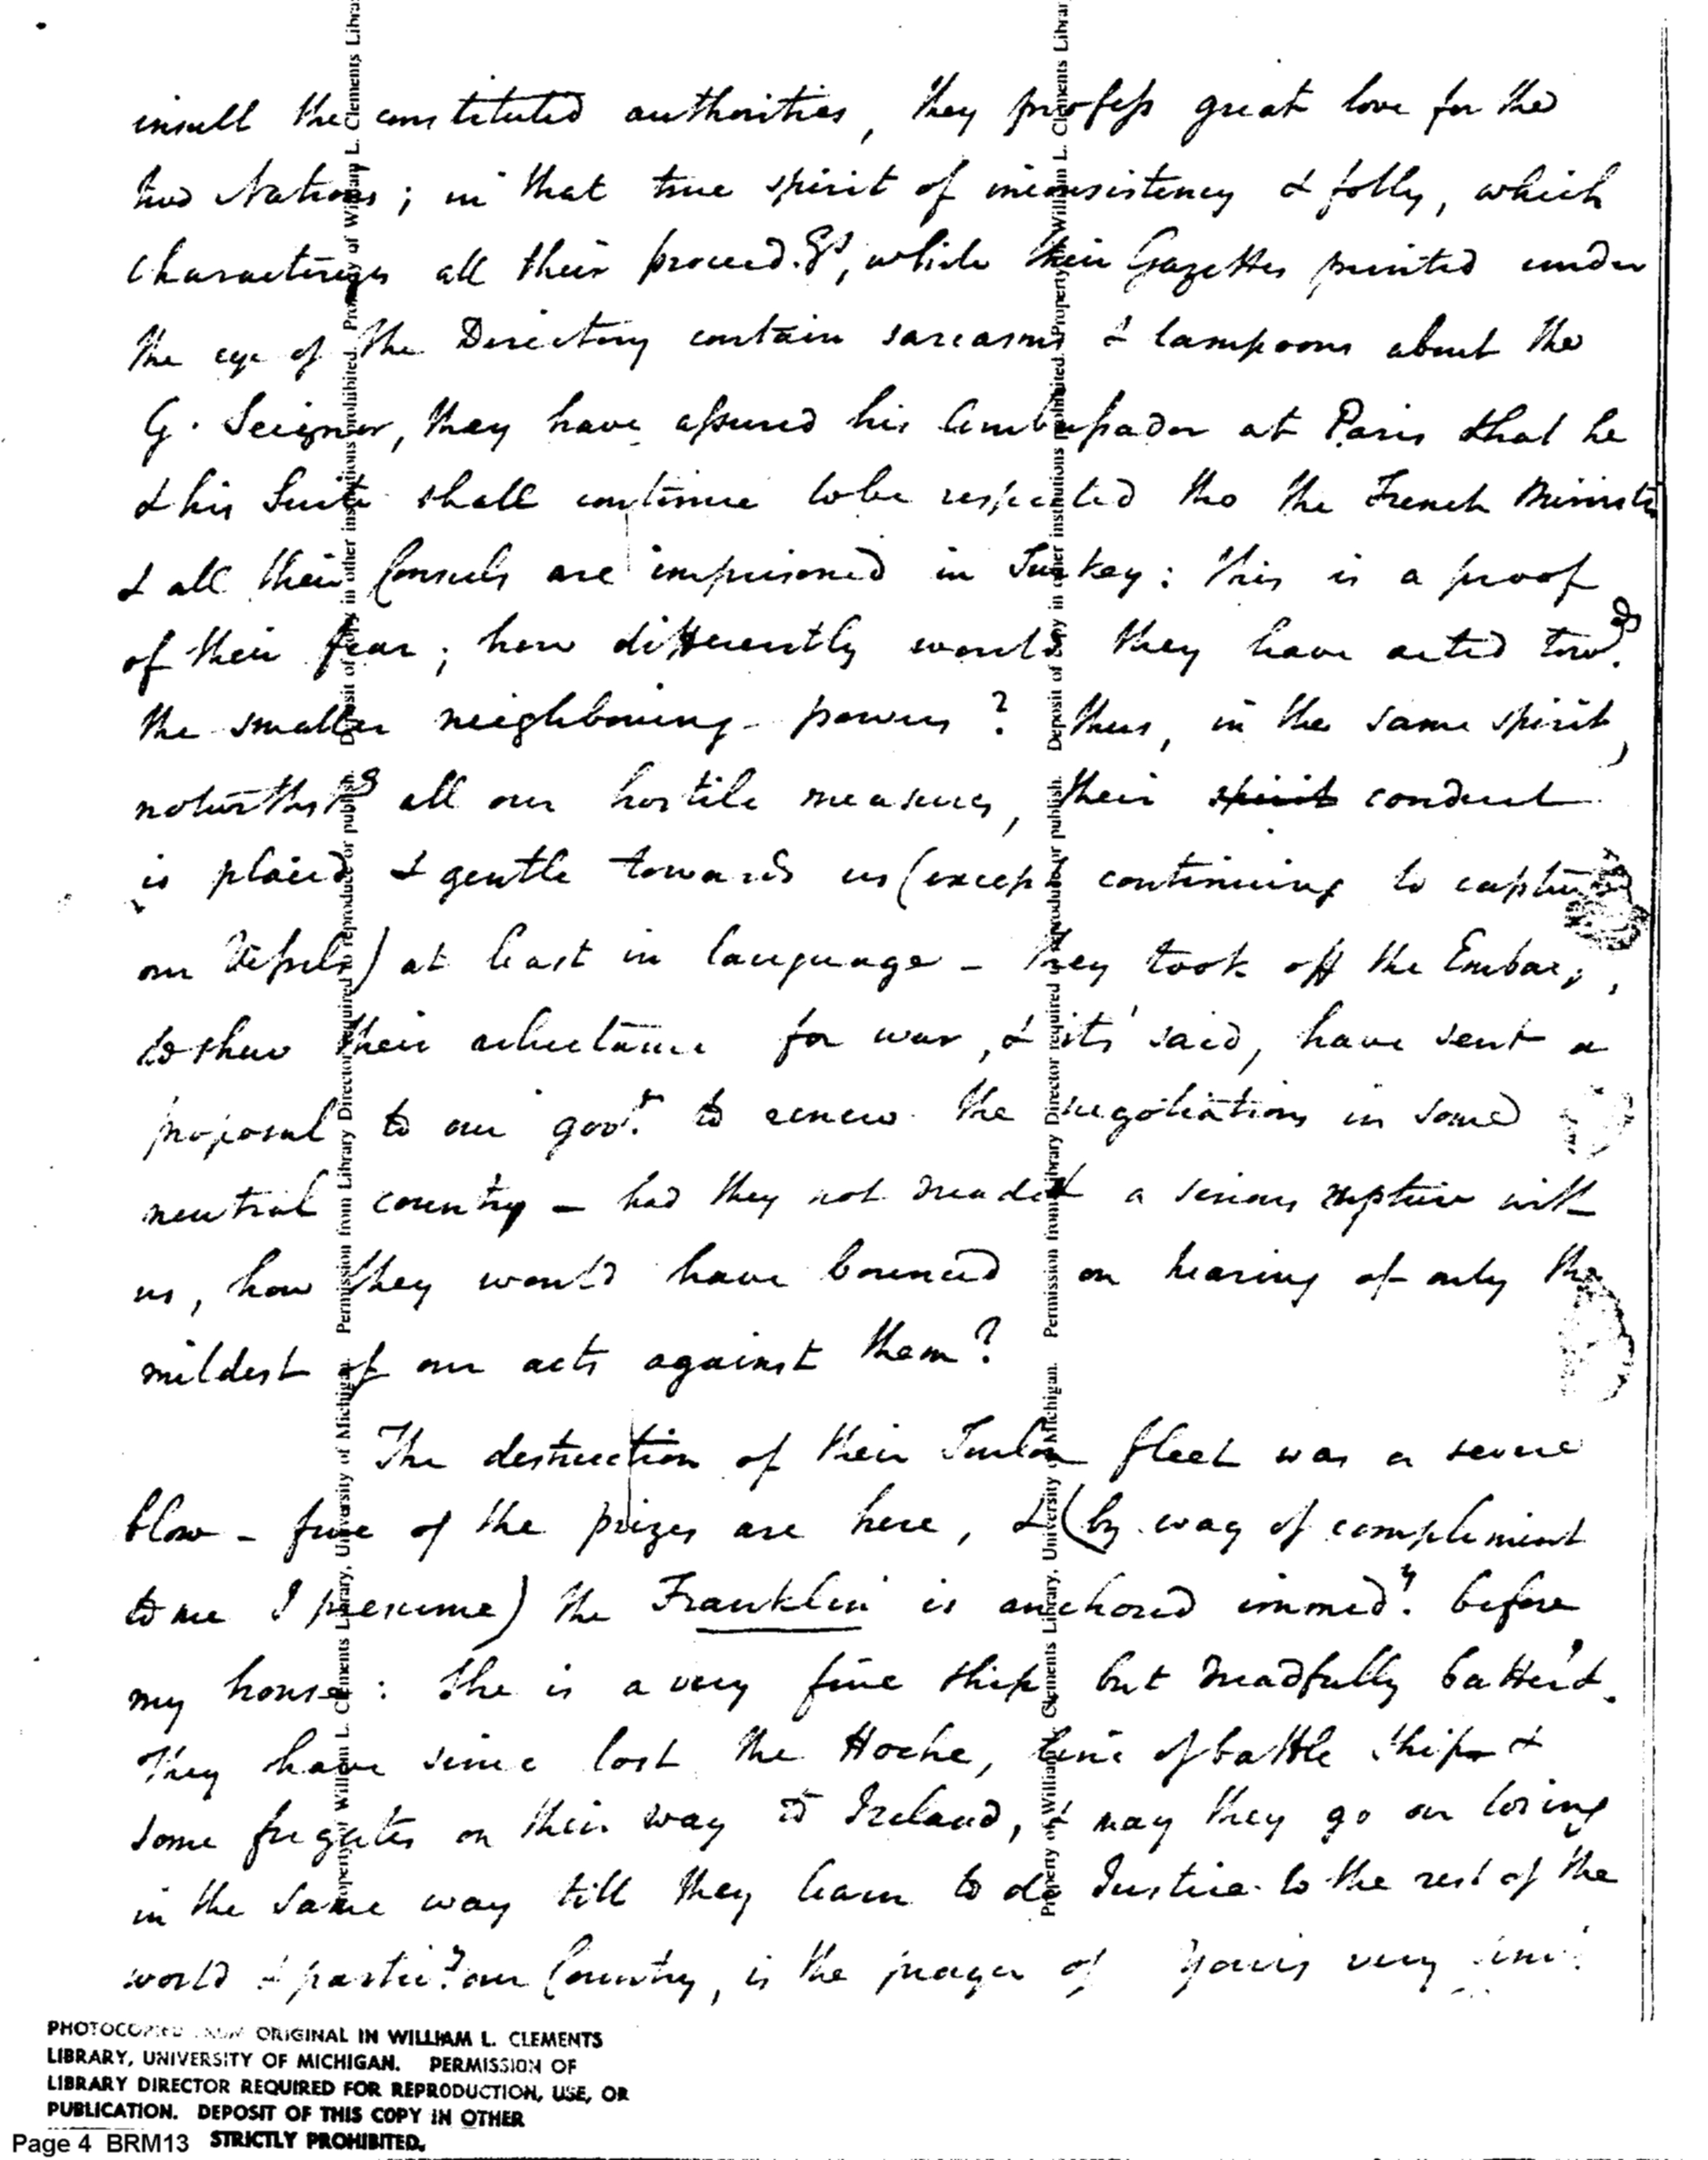 insult the constituted authorities, they profess great love for the
two Nations; in that true spirit of inconsistency & folly, which
characterizes all their proceed.gs, while their Gazettes printed under
the eye of the Directory contain sarcasms & lampoons about the
G. Seignor, they have assured his Ambassador at Paris that he
& his Suite shall continue to be respected tho the French Ministr
& all their Consuls are imprisoned in Turkey: this is a proof
of their fear; how differently would they have acted towds.
the smaller neighbouring powers? thus, in the same spirit,
notwithstg all our hostile measures, their spirit conduct
is placid & gentle towards us (except continuing to capture
our Vessels) at least in language - They took off the Embar,
to shew their reluctance for war, & its' said, have sent a
proposal to our govt. to renew the negotiations in some
neutral country - had they not dreaded a serious rupture with
us, how they would have bounced on hearing of only the
mildest of our acts against them?
The destruction of their Toulon fleet was a severe
blow - five of the prizes are here, & (by way of compliment
to me I presume) the Franklin is anchored immedy. before
my house: She is a very fine ship but dreadfully batter'd.
They have since lost the Hoche, line of battle ship &
some frigates on their way to Ireland, & may they go on losing
in the same way till they learn to do Justice to the rest of the
world & particy. our Country, is the prayer of Yours very
PHOTOCOPIED FROM ORIGINAL IN WILLIAM L. CLEMENTS
LIBRARY, UNIVERSITY OF MICHIGAN. PERMISSION OF
LIBRARY DIRECTOR REQUIRED FOR REPRODUCTION, USE, OR
PUBLICATION. DEPOSIT OF THIS COPY IN OTHER
STRICTLY PROHIBITED.
Page 4 BRM13
Property of William L. Clements Library, University of Michigan. Permission from Library Director required to reproduce or publish. Deposit of copy in other institutions prohibited. Property of William L. Clements Librar
Property of William L. Clements Library, University of Michigan. Permission from Library Director required to reproduce or publish. Deposit of copy in other institutions prohibited. Property of William L. Clements Librar